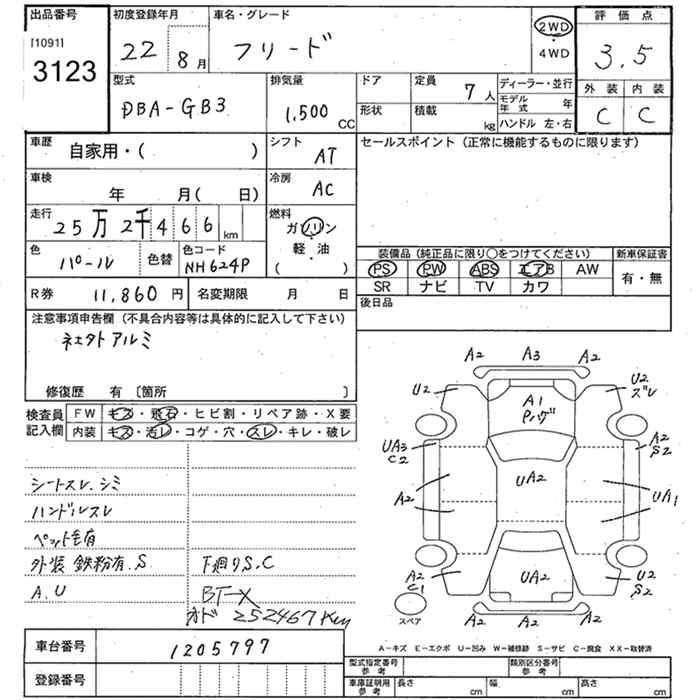 出品番号
[1091]
3123
初度登録年月
22 8月
車名・グレード
フリード
2WD
・
4WD
評価点
3.5
外装 内装
C C
型式
DBA-GB3
排気量
1,500 CC
ドア
形状
定員 7人
積載 kg
ディーラー・並行
モデル年式 年
ハンドル 左・右
車歴
自家用・( )
シフト
AT
セールスポイント (正常に機能するものに限ります)
車検
年 月( 日)
冷房
AC
走行
25万2千466 km
燃料
ガソリン
・
軽・油
( )
色
パール
色替
色コード
NH624P
装備品 (純正品に限り○をつけてください)
新車保証書
PS PW ABS エアB AW
有・無
SR ナビ TV カワ
R券 11,860円
名変期限 月 日
後日品
注意事項申告欄 (不具合内容等は具体的に記入して下さい)
社外アルミ
修復歴 有 〔箇所 〕
検査員
記入欄
FW キズ・飛石・ヒビ割・リペア跡・X要
内装 キズ・汚レ・コゲ・穴・スレ・キレ・破レ
シートスレ.シミ
ハンドルスレ
ペット毛有
外装 鉄粉有.S
下廻りS.C
A.U
BT-X
オド 252467km
A2 A3 A2
U2
A1
Pハゲ
U2
ズレ
UA3
C2
A2
S2
A2
UA2
UA1
A2
C1
UA2
U2
S2
スペア
A2 A2 A2
A-キズ E-エクボ U-凹み W-補修跡 S-サビ C-腐食 XX-取替済
車台番号
1205797
登録番号
型式指定番号
参考
類別区分番号
参考
車庫証明用
参考
長さ cm
幅 cm
高さ cm